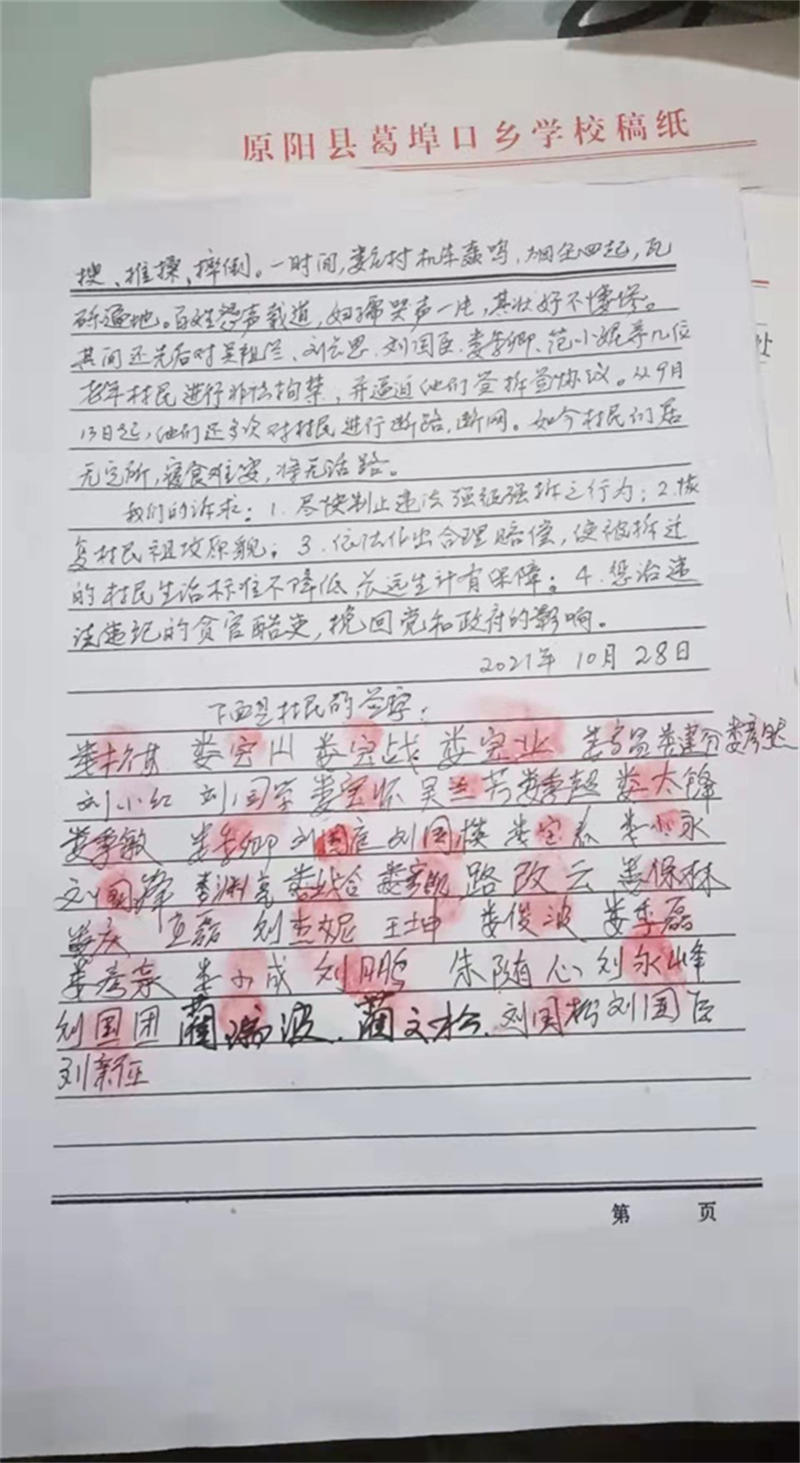 原阳县葛埠口乡学校稿纸
搜、推搡、摔倒。一时间,娄庄村机车轰鸣,烟尘四起,瓦
砾遍地。百姓怨声载道,妇孺哭声一片,其状好不悽惨。
其间还先后对吴祖兰、刘云思、刘国臣、娄季卿、范小妮等几位
老年村民进行非法拘禁,并逼迫他们签拆签协议。从9月
13日起,他们还多次对村民进行断路,断网。如今村民们居
无定所,寝食难安,将无活路。
我们的诉求:1.尽快制止违法强征强拆之行为;2.恢
复村民祖坟原貌;3.依法作出合理赔偿,使被拆迁
的村民生活标准不降低 长远生计有保障;4.惩治违
法违纪的贪官酷吏,挽回党和政府的影响。
2021年 10月 28日
下面是村民的签字:
娄宝山 娄宝战 娄宝业
刘小红 刘国学 娄宝怀 吴兰芳 娄季超 娄太锋
娄季敏 娄季卿 刘国庄 刘国模 娄宝 娄小永
刘国锋 娄战合 路改云 娄保林
娄庆 磊 刘杰妮 王坤 娄俊波 娄季磊
娄小成 刘鹏 朱随心 刘永峰
刘国团 蔺瑞波 蔺文松 刘国松 刘国臣
刘新征
第 页